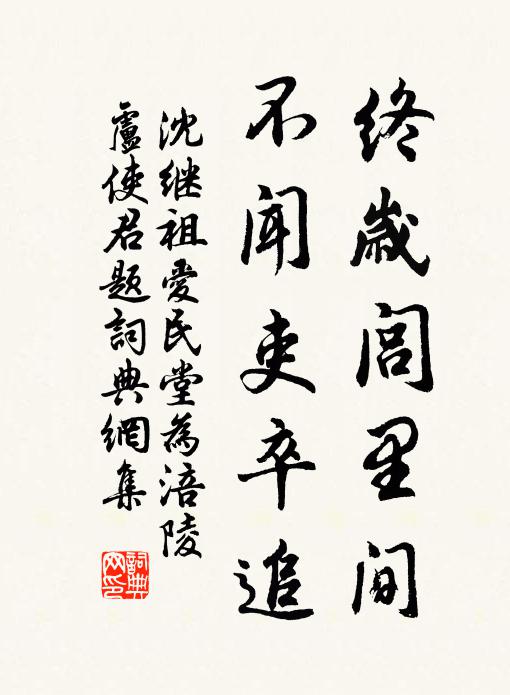 终歲閭里間
不聞吏卒追
沈继祖愛民堂為涪陵
盧使君题詞典網集
詞典网印